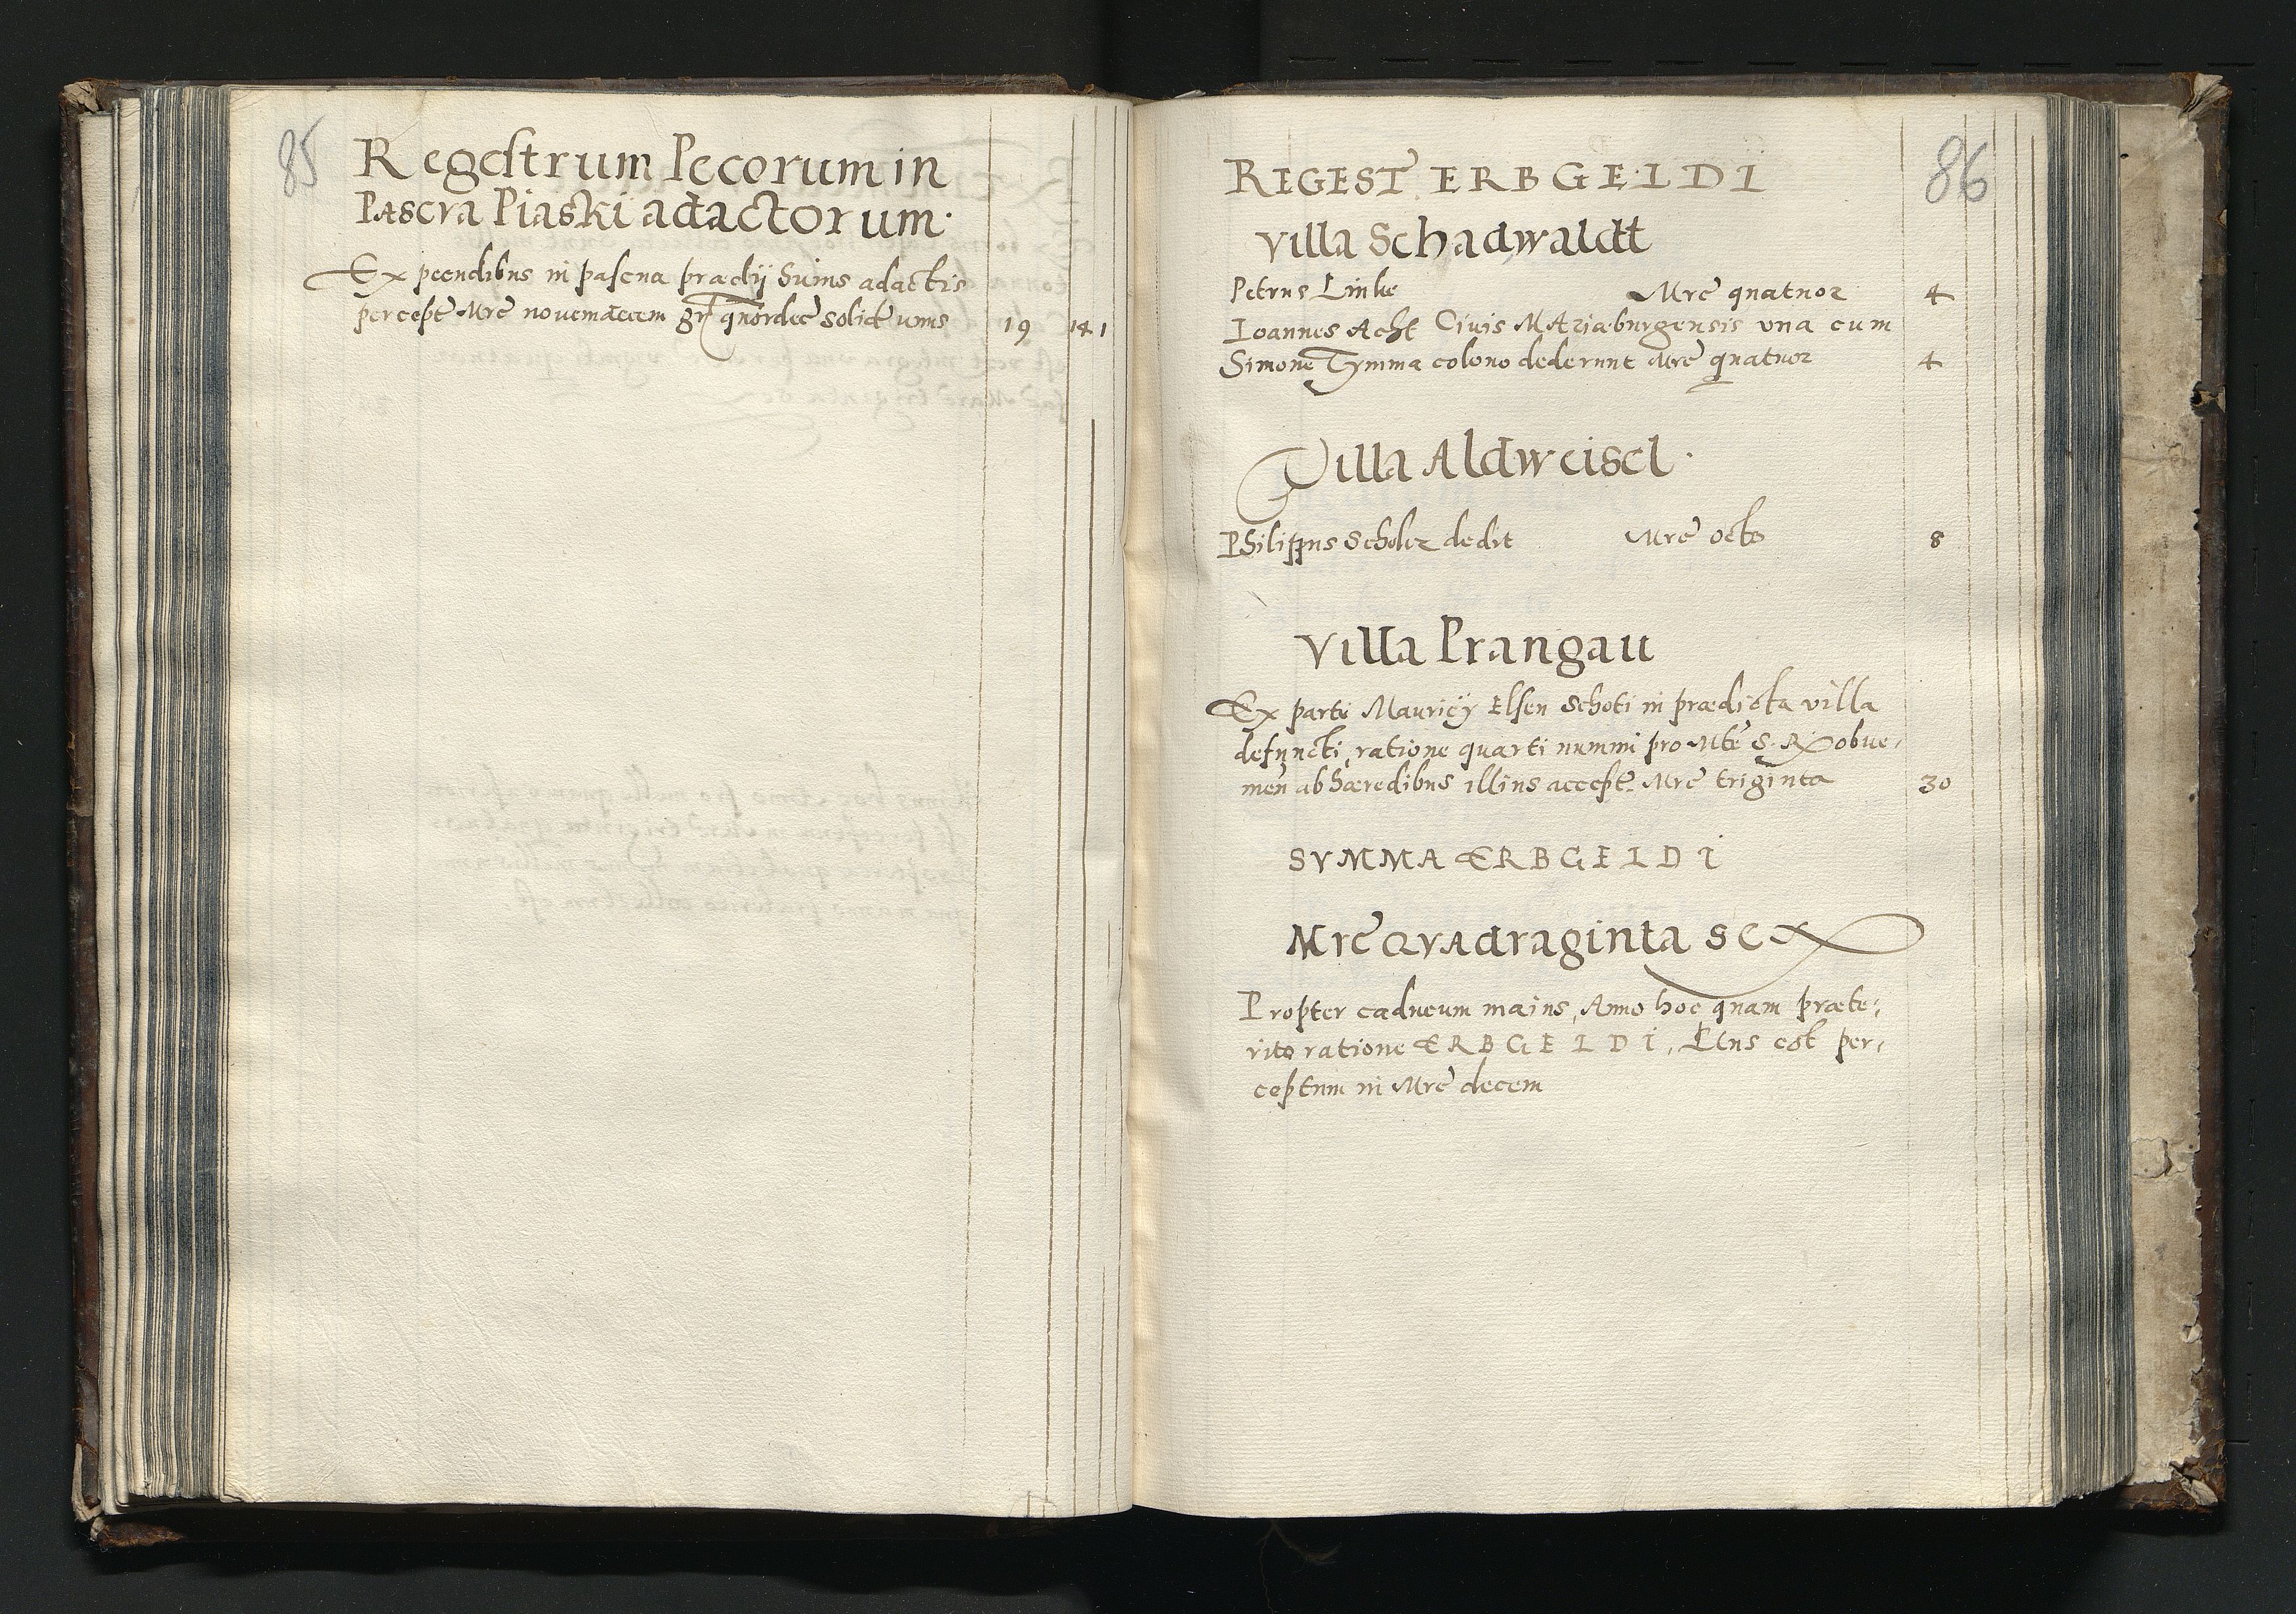 85
Regestrum Pecorum in
Pascva Piaski adactorum.
Ex pecudibus in pascua prædÿ huius adactis
percept Mrc novemdecem gr quordec solid unus 19 14 1
86
REGEST ERBGELDI
Villa Schadwaldt
Petrus Linke Mrc quatuor 4
Ioannes Acht Civis Mariæburgensis una cum
Simone Tymma colono dederunt Mrc quatuor 4
Villa Aldweisel.
Philippus Scholcz dedit Mrc octo 8
Villa Prangau
Ex parte Mauricÿ Elsen Schoti in prædicta villa
defuncti, ratione quarti nummi pro Mte S. R. obue,
men ab hæredibus illius accept Mrc triginta 30
SVMMA ERBGELDI
Mrc QVAdraginta sex
Propter caducum maius, Anno hoc quam præte,
rito ratione ERBGELDI, Plus est per,
ceptum in Mrc decem